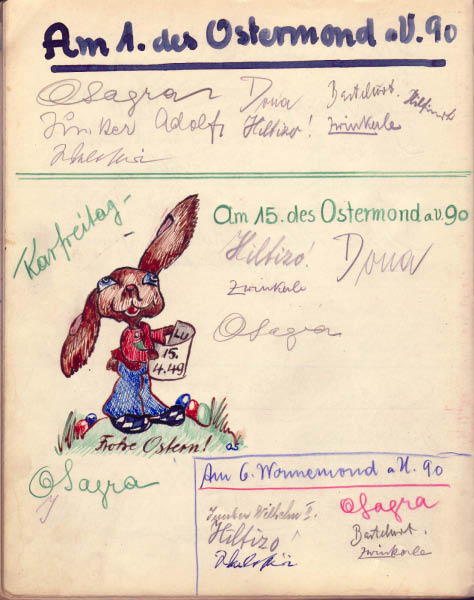 Am 1. des Ostermond a.U. 90
OSagra Dona Bartelurt.
Junker Adolf, Hilfizo! Zwinkerle
Karfreitag-
Am 15. des Ostermond a.U. 90
Hilfizo! Dona
Zwinkerle
OSagra
15.
4.49
Frohe Ostern!
OSagra
Am 6. Wonnemond a.U. 90
Junker Wilhelm I. OSagra
Hilfizo! Bartelurt.
Zwinkerle